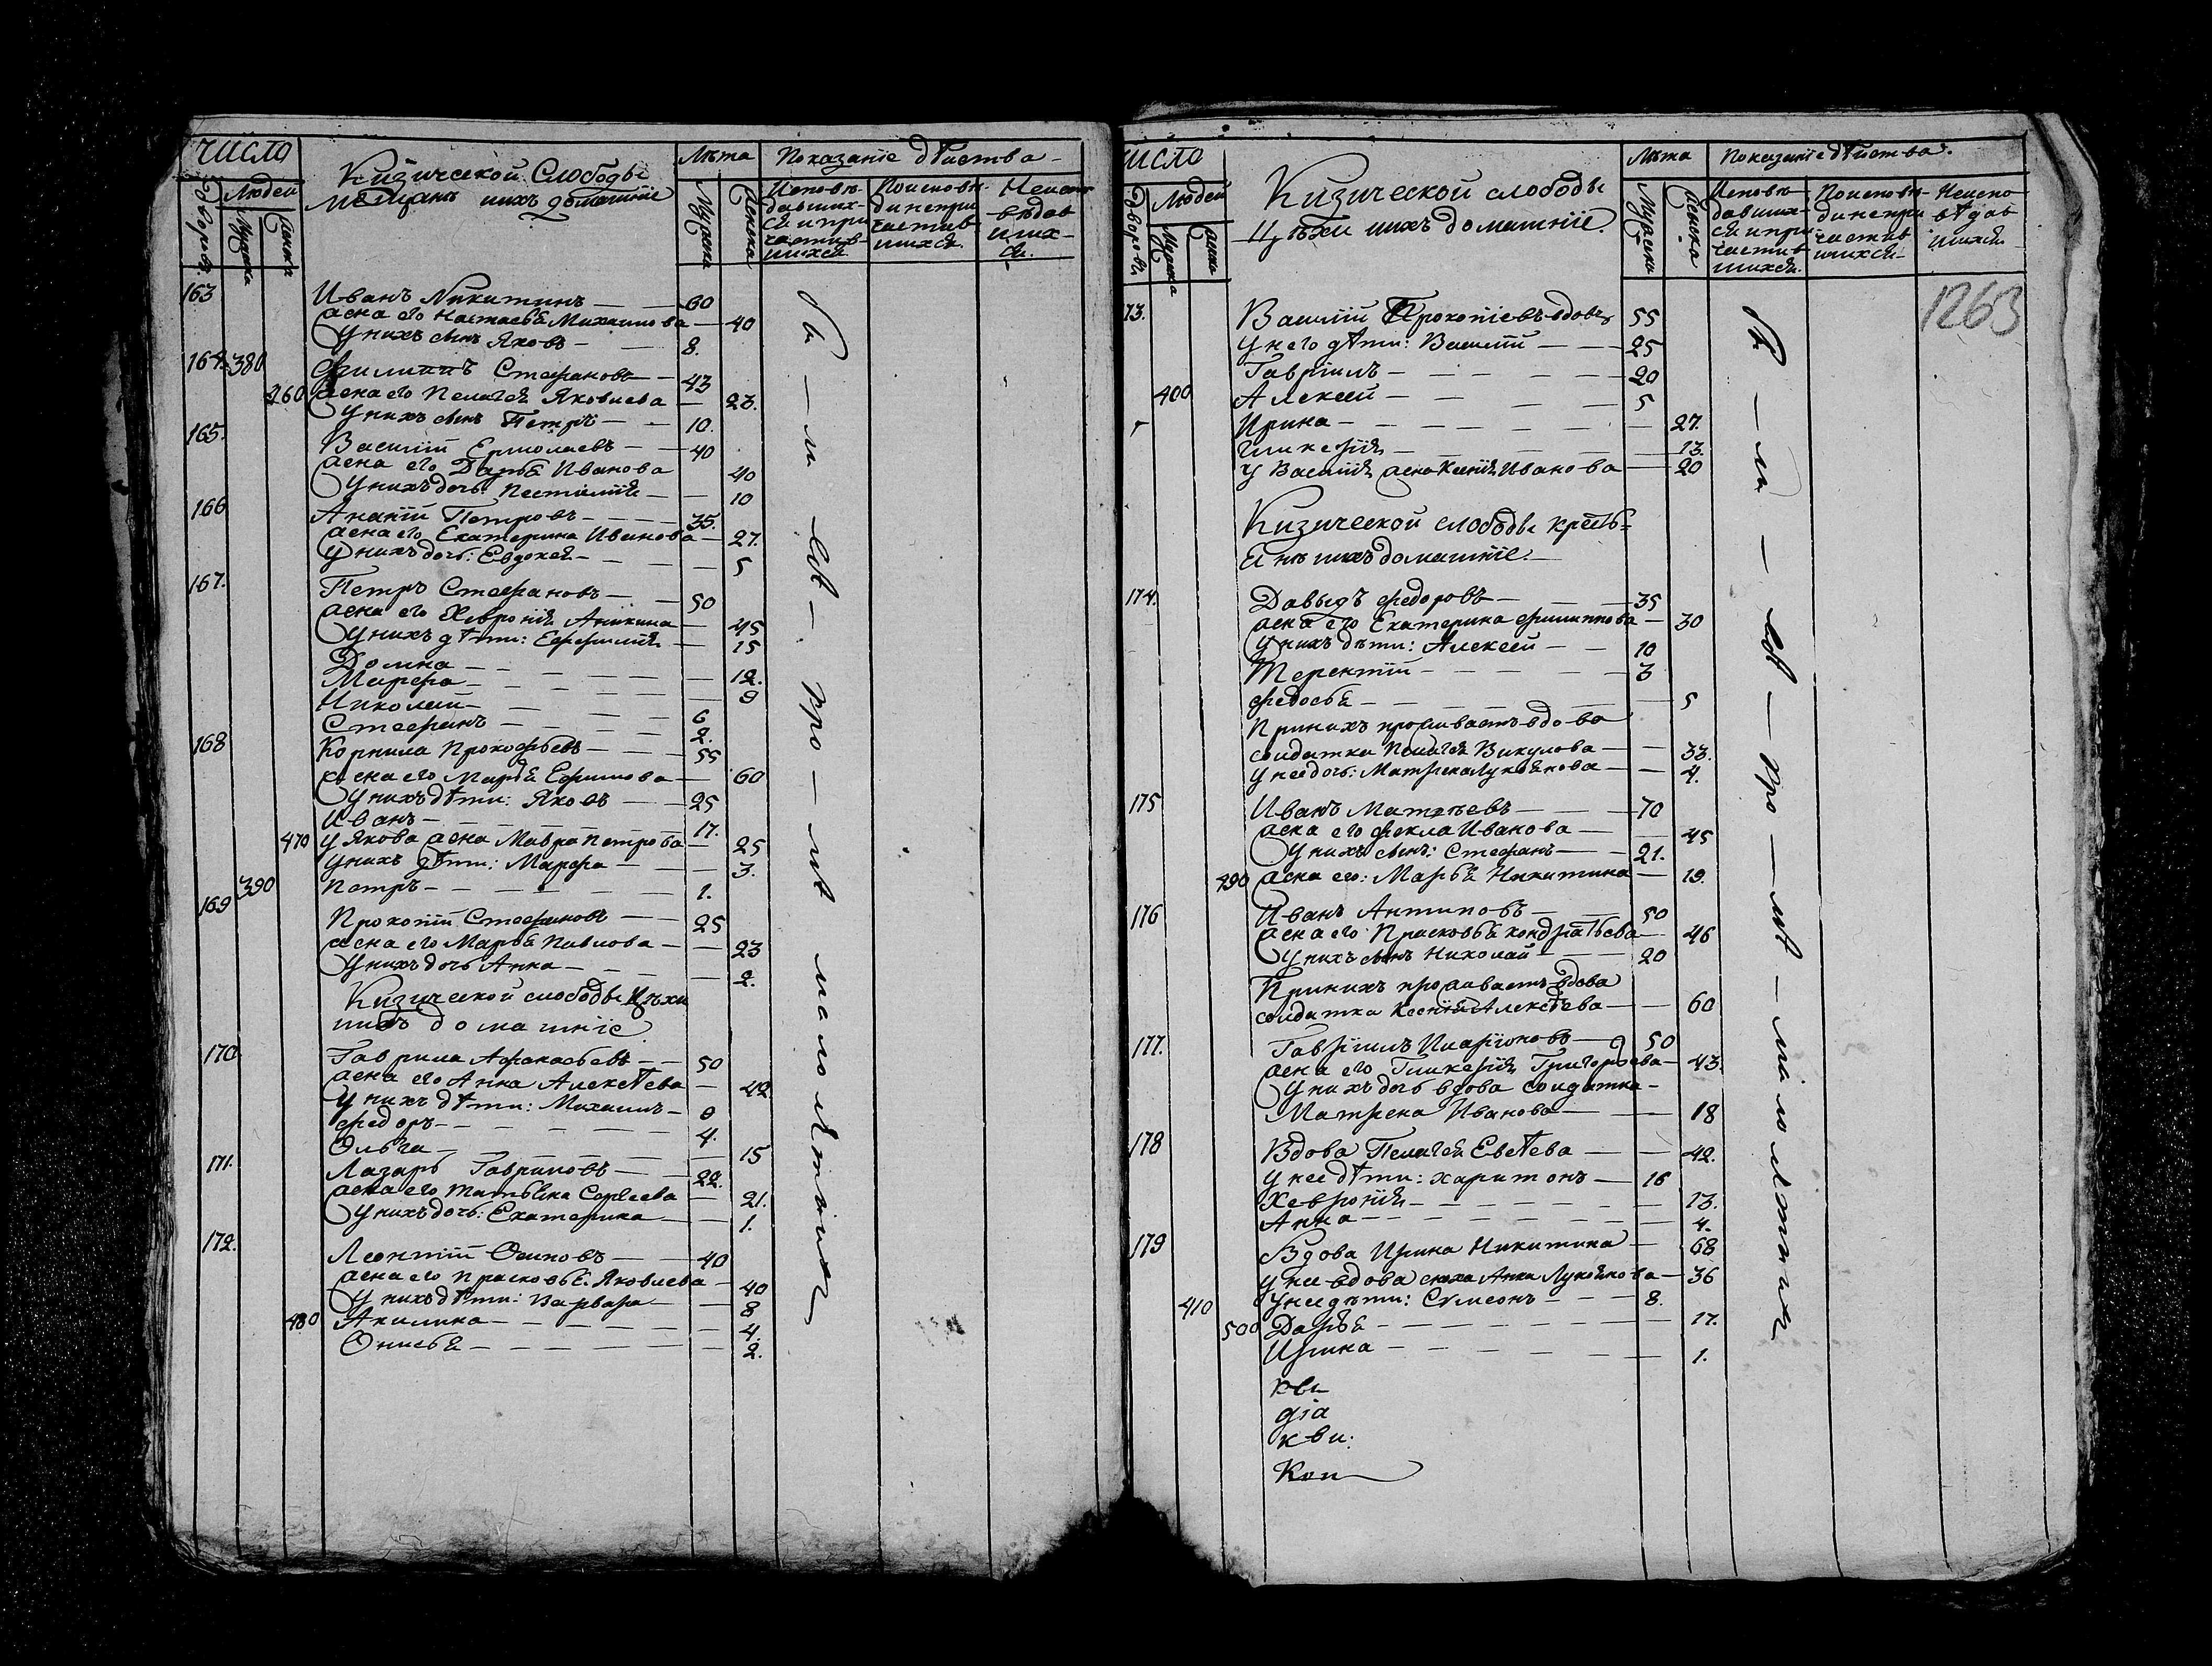 Число
Дворовъ
Людей
Мужска
Женска
Кизической Слободы
мещанъ и ихъ домашніе
Лѣта
Мужска
Женска
Показаніе дѣйства
Исповѣ-
давших-
ся и при
частив-
шихся
По исповѣ-
ди не при
частив
шихся
Неиспо
вѣдав
ших-
ся.
163 Иванъ Никитинъ — 60
жена его Настасья Михаилова — 40
У нихъ сынъ Яковъ — 8.
164. 380 Филиппъ Стефановъ — 43
460 жена его Пелагея Яковлева — 23.
У нихъ сынъ Петръ — 10.
165. Василій Ермолаевъ — 40
жена его Дарья Иванова 40
У нихъ дочь — 10
166 Ананій Петровъ — 35.
жена его Екатерина Иванова — 27.
У нихъ дочь: Евдокея — 5
167. Петръ Стефановъ — 50
жена его Хеврониія Аникина — 45
У нихъ дѣти: Ефимія — 15
Домна — 12.
Марфа — 9
Николай — 6
Стефанъ — 2.
168 Корнила Прокофьевъ — 55
жена его Марья Ефимова — 60
У нихъ дѣти: Яковъ — 25
Иванъ — 17.
470 у Якова жена Мавра Петрова — 25
У нихъ дѣти: Марфа — 3.
390 Петръ — 1.
169 Прокопій Стефановъ — 25
жена его Марья Павлова — 23
У нихъ дочь Анна — 2.
Кизической слободы Цѣхи
и ихъ домашніе
170 Гаврила Афанасьевъ — 50
жена его Анна Алексѣева — 42
У нихъ дѣти: Михаилъ — 9
Федоръ — 4.
Ольга — 15
171. Лазарь Гавриловъ — 22.
жена его Татьяна Сергеева — 21.
У нихъ дочь: Екатерина — 1.
172. Леонтій Осиповъ — 40
жена его Прасковья Яковлева — 40
У нихъ дѣти: Варвара — 8
480 Акилина — 4.
Онисья — 2.
малолѣтних
Число
Дворовъ
Людей
Мужска
Женска
Кизической слободы
Цѣхи и ихъ домашніе.
Лѣта
Мужска
Женска
Показаніе дѣйства.
Исповѣ-
давших-
ся и при
частив
шихся.
По исповѣ-
ди не при
частив
шихся
Неиспо-
вѣдав
шихся
1263
73. Василій Прокопіевъ вдовъ 55
У него дѣти: Василій — 25
Гавріилъ — 20
400 Алексей — 5
Ирина — 27.
Гликерія — 13.
У Василія жена Ксенія Иванова — 20
Кизической слободы кресть-
яне и ихъ домашніе.
174. Давыдъ Федоровъ — 35
жена его Екатерина Филиппова — 30
У нихъ дѣти: Алексей — 10
Терентій — 3
Федосья — 5
При нихъ проживаетъ вдова
солдатка Пелагея Викулова — 33.
У нее дочь: Матрена Лукоянова — 4.
175 Иванъ Матвѣевъ — 70
жена его Фекла Иванова — 45
У нихъ сынъ: Стефанъ — 21.
490 жена его: Марья Никитина — 19.
176 Иванъ Антиповъ — 50
жена его Прасковья Кондратьева — 46
У нихъ сынъ Николай — 20
При нихъ проживаетъ вдова
солдатка Ксенія Алексѣева — 60
177. Гавріилъ Иларіоновъ — 50
жена его Гликерія Григорьева — 43.
У нихъ дочь вдова солдатка
Матрена Иванова — 18
178 Вдова Пелагея Евсѣева — 42.
У нее дѣти: Харитонъ — 16
Хевронія — 13.
Анна — 4.
179 Вдова Ирина Никитина — 68
у нее вдова сноха Анна Лукоянова — 36
У нее дѣти: Сумеонъ — 8.
410 500 Дарья — 17.
Ирина — 1.
малолѣтних